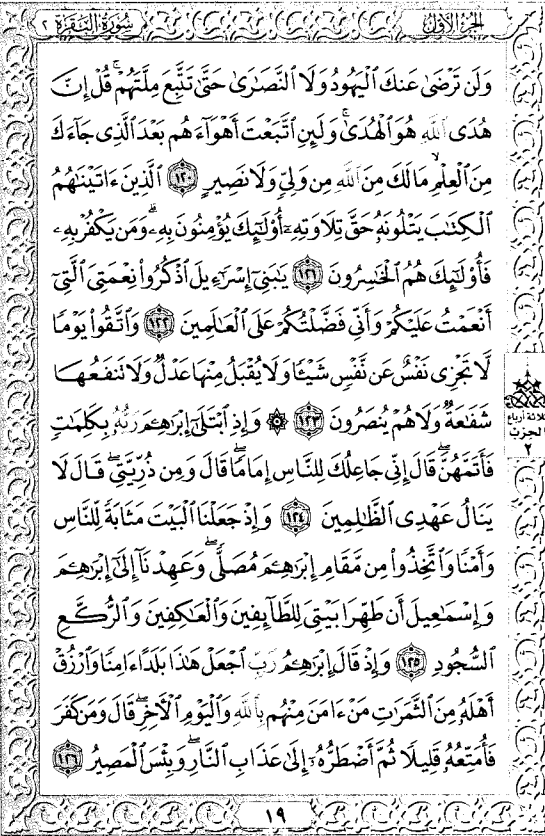 سورة البقرة ٢
الجزء الأول
وَلَن تَرْضَىٰ عَنكَ ٱلْيَهُودُ وَلَا ٱلنَّصَٰرَىٰ حَتَّىٰ تَتَّبِعَ مِلَّتَهُمْ ۗ قُلْ إِنَّ
هُدَى ٱللَّهِ هُوَ ٱلْهُدَىٰ ۗ وَلَئِنِ ٱتَّبَعْتَ أَهْوَآءَهُم بَعْدَ ٱلَّذِى جَآءَكَ
مِنَ ٱلْعِلْمِ ۙ مَا لَكَ مِنَ ٱللَّهِ مِن وَلِىٍّ وَلَا نَصِيرٍ ١٢٠ ٱلَّذِينَ ءَاتَيْنَٰهُمُ
ٱلْكِتَٰبَ يَتْلُونَهُۥ حَقَّ تِلَاوَتِهِۦٓ أُو۟لَٰٓئِكَ يُؤْمِنُونَ بِهِۦ ۗ وَمَن يَكْفُرْ بِهِۦ
فَأُو۟لَٰٓئِكَ هُمُ ٱلْخَٰسِرُونَ ١٢١ يَٰبَنِىٓ إِسْرَٰٓءِيلَ ٱذْكُرُوا۟ نِعْمَتِىَ ٱلَّتِىٓ
أَنْعَمْتُ عَلَيْكُمْ وَأَنِّى فَضَّلْتُكُمْ عَلَى ٱلْعَٰلَمِينَ ١٢٢ وَٱتَّقُوا۟ يَوْمًا
لَّا تَجْزِى نَفْسٌ عَن نَّفْسٍ شَيْـًٔا وَلَا يُقْبَلُ مِنْهَا عَدْلٌ وَلَا تَنفَعُهَا
شَفَٰعَةٌ وَلَا هُمْ يُنصَرُونَ ١٢٣ ۞ وَإِذِ ٱبْتَلَىٰٓ إِبْرَٰهِـۧمَ رَبُّهُۥ بِكَلِمَٰتٍ
فَأَتَمَّهُنَّ ۖ قَالَ إِنِّى جَاعِلُكَ لِلنَّاسِ إِمَامًا ۖ قَالَ وَمِن ذُرِّيَّتِى ۖ قَالَ لَا
يَنَالُ عَهْدِى ٱلظَّٰلِمِينَ ١٢٤ وَإِذْ جَعَلْنَا ٱلْبَيْتَ مَثَابَةً لِّلنَّاسِ
وَأَمْنًا وَٱتَّخِذُوا۟ مِن مَّقَامِ إِبْرَٰهِـۧمَ مُصَلًّى ۖ وَعَهِدْنَآ إِلَىٰٓ إِبْرَٰهِـۧمَ
وَإِسْمَٰعِيلَ أَن طَهِّرَا بَيْتِىَ لِلطَّآئِفِينَ وَٱلْعَٰكِفِينَ وَٱلرُّكَّعِ
ٱلسُّجُودِ ١٢٥ وَإِذْ قَالَ إِبْرَٰهِـۧمُ رَبِّ ٱجْعَلْ هَٰذَا بَلَدًا ءَامِنًا وَٱرْزُقْ
أَهْلَهُۥ مِنَ ٱلثَّمَرَٰتِ مَنْ ءَامَنَ مِنْهُم بِٱللَّهِ وَٱلْيَوْمِ ٱلْـَٔاخِرِ ۖ قَالَ وَمَن كَفَرَ
فَأُمَتِّعُهُۥ قَلِيلًا ثُمَّ أَضْطَرُّهُۥٓ إِلَىٰ عَذَابِ ٱلنَّارِ ۖ وَبِئْسَ ٱلْمَصِيرُ ١٢٦
ثلاثة أرباع
الحزب
٢
١٩